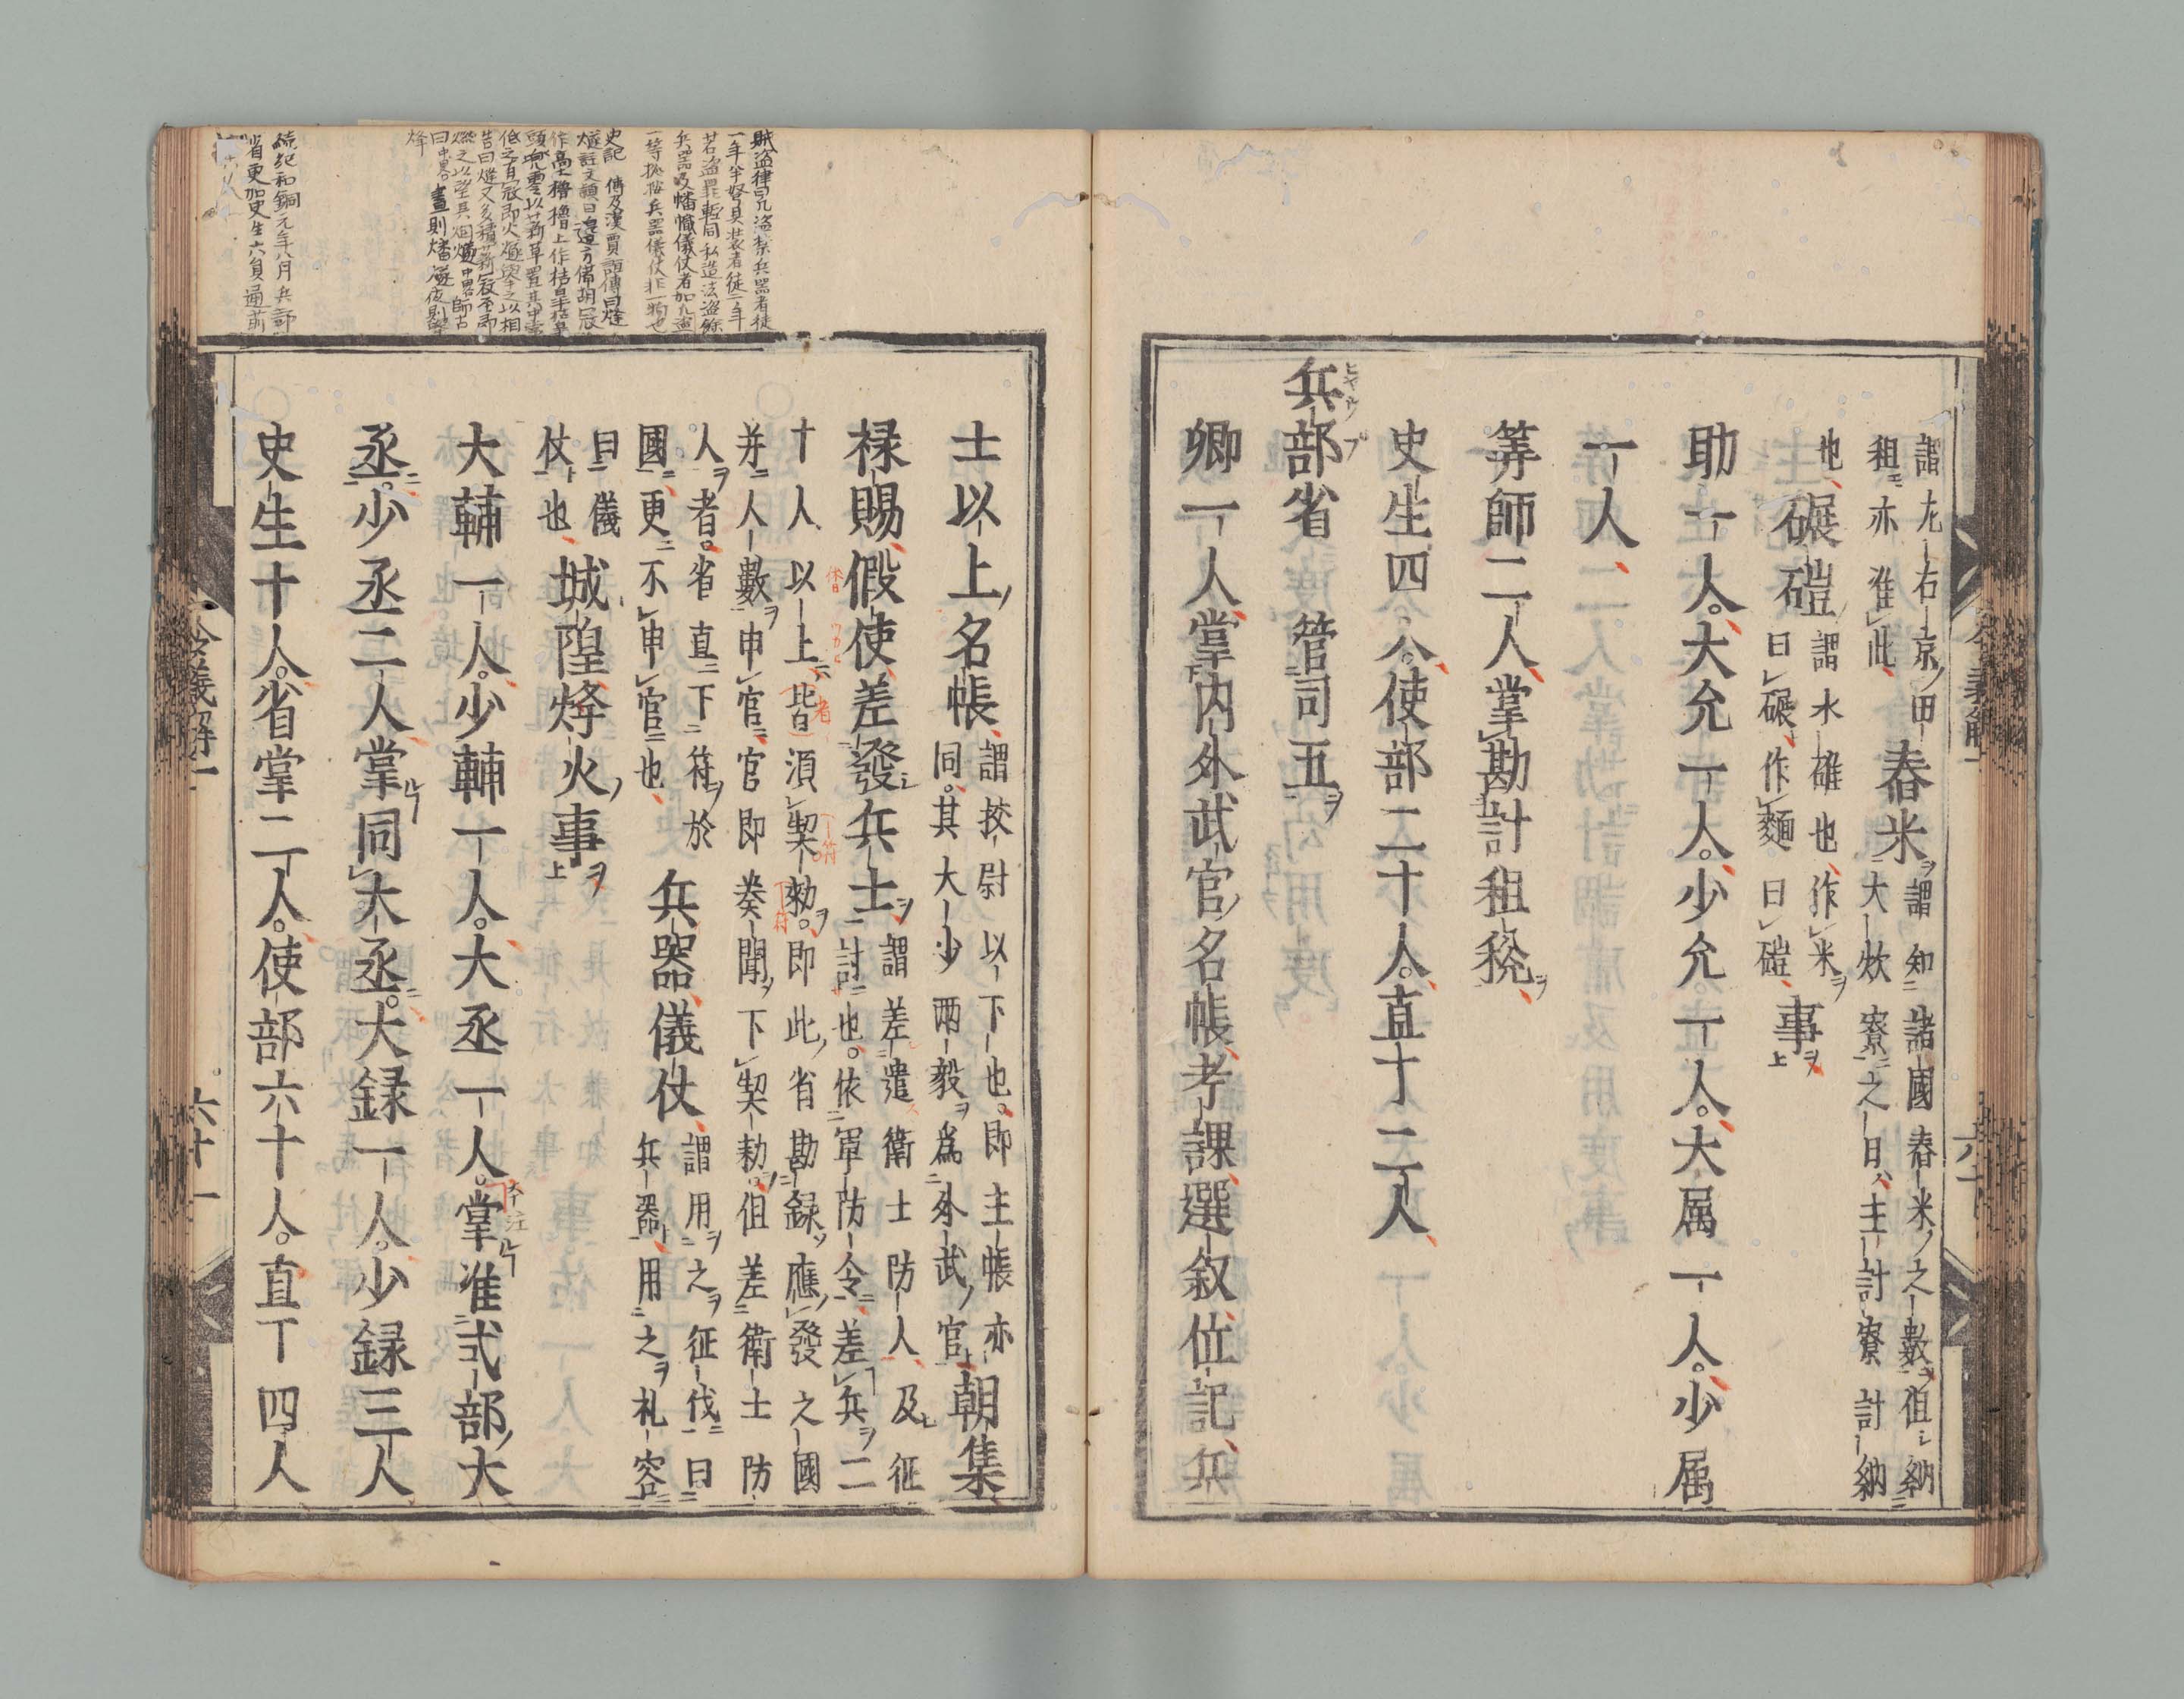 謂左右京田
租亦准此
也
舂米
謂知諸國舂米之數但納
大炊寮之日主計寮計納
碾磑
謂水碓也作米
曰碾作麵曰磑
事
助一人大允一人少允一人大属一人少属
一人
筭師二人掌勘計租税
史生四人使部二十人直丁二人
兵部省 管司五
卿一人掌内外武官名帳考課選叙位記兵
令義解一
士以上名帳
謂挍尉以下也即主帳亦
同其大少兩毅爲外武官
朝集
禄賜假使差發兵士
謂差遣衛士防人及征
討也依軍防令差兵二
十人以上皆須契勅即此省勘録應發之國
并人數申官官即奏聞下契勅但差衛士防
人者省直下符於
國更不申官也
兵器儀仗
謂用之征伐曰
兵器用之礼容
曰儀
仗也
城隍烽火事
大輔一人少輔一人大丞一人掌准式部大
丞少丞二人掌同大丞大録一人少録三人
史生十人省掌二人使部六十人直丁四人
令義解一
六十一
賊盗律曰凡盗禁兵器者徒
一年半弩具装者徒二年
若盗罪輕同私造法盗餘
兵器及幡幟儀仗者加凡盗
一等
史記 傳及漢賈誼傳曰烽
燧註文頴曰邊方備胡寇
作高土櫓櫓上作桔皐桔皐
頭兜零以薪草置其中常
低之有寇即火燃擧之以相
告曰烽又多積薪寇至即
燃之以望其烟曰燧中畧師古
曰中畧晝則燔燧夜則擧
烽
續紀和銅元年八月兵部
省更加史生六員通前